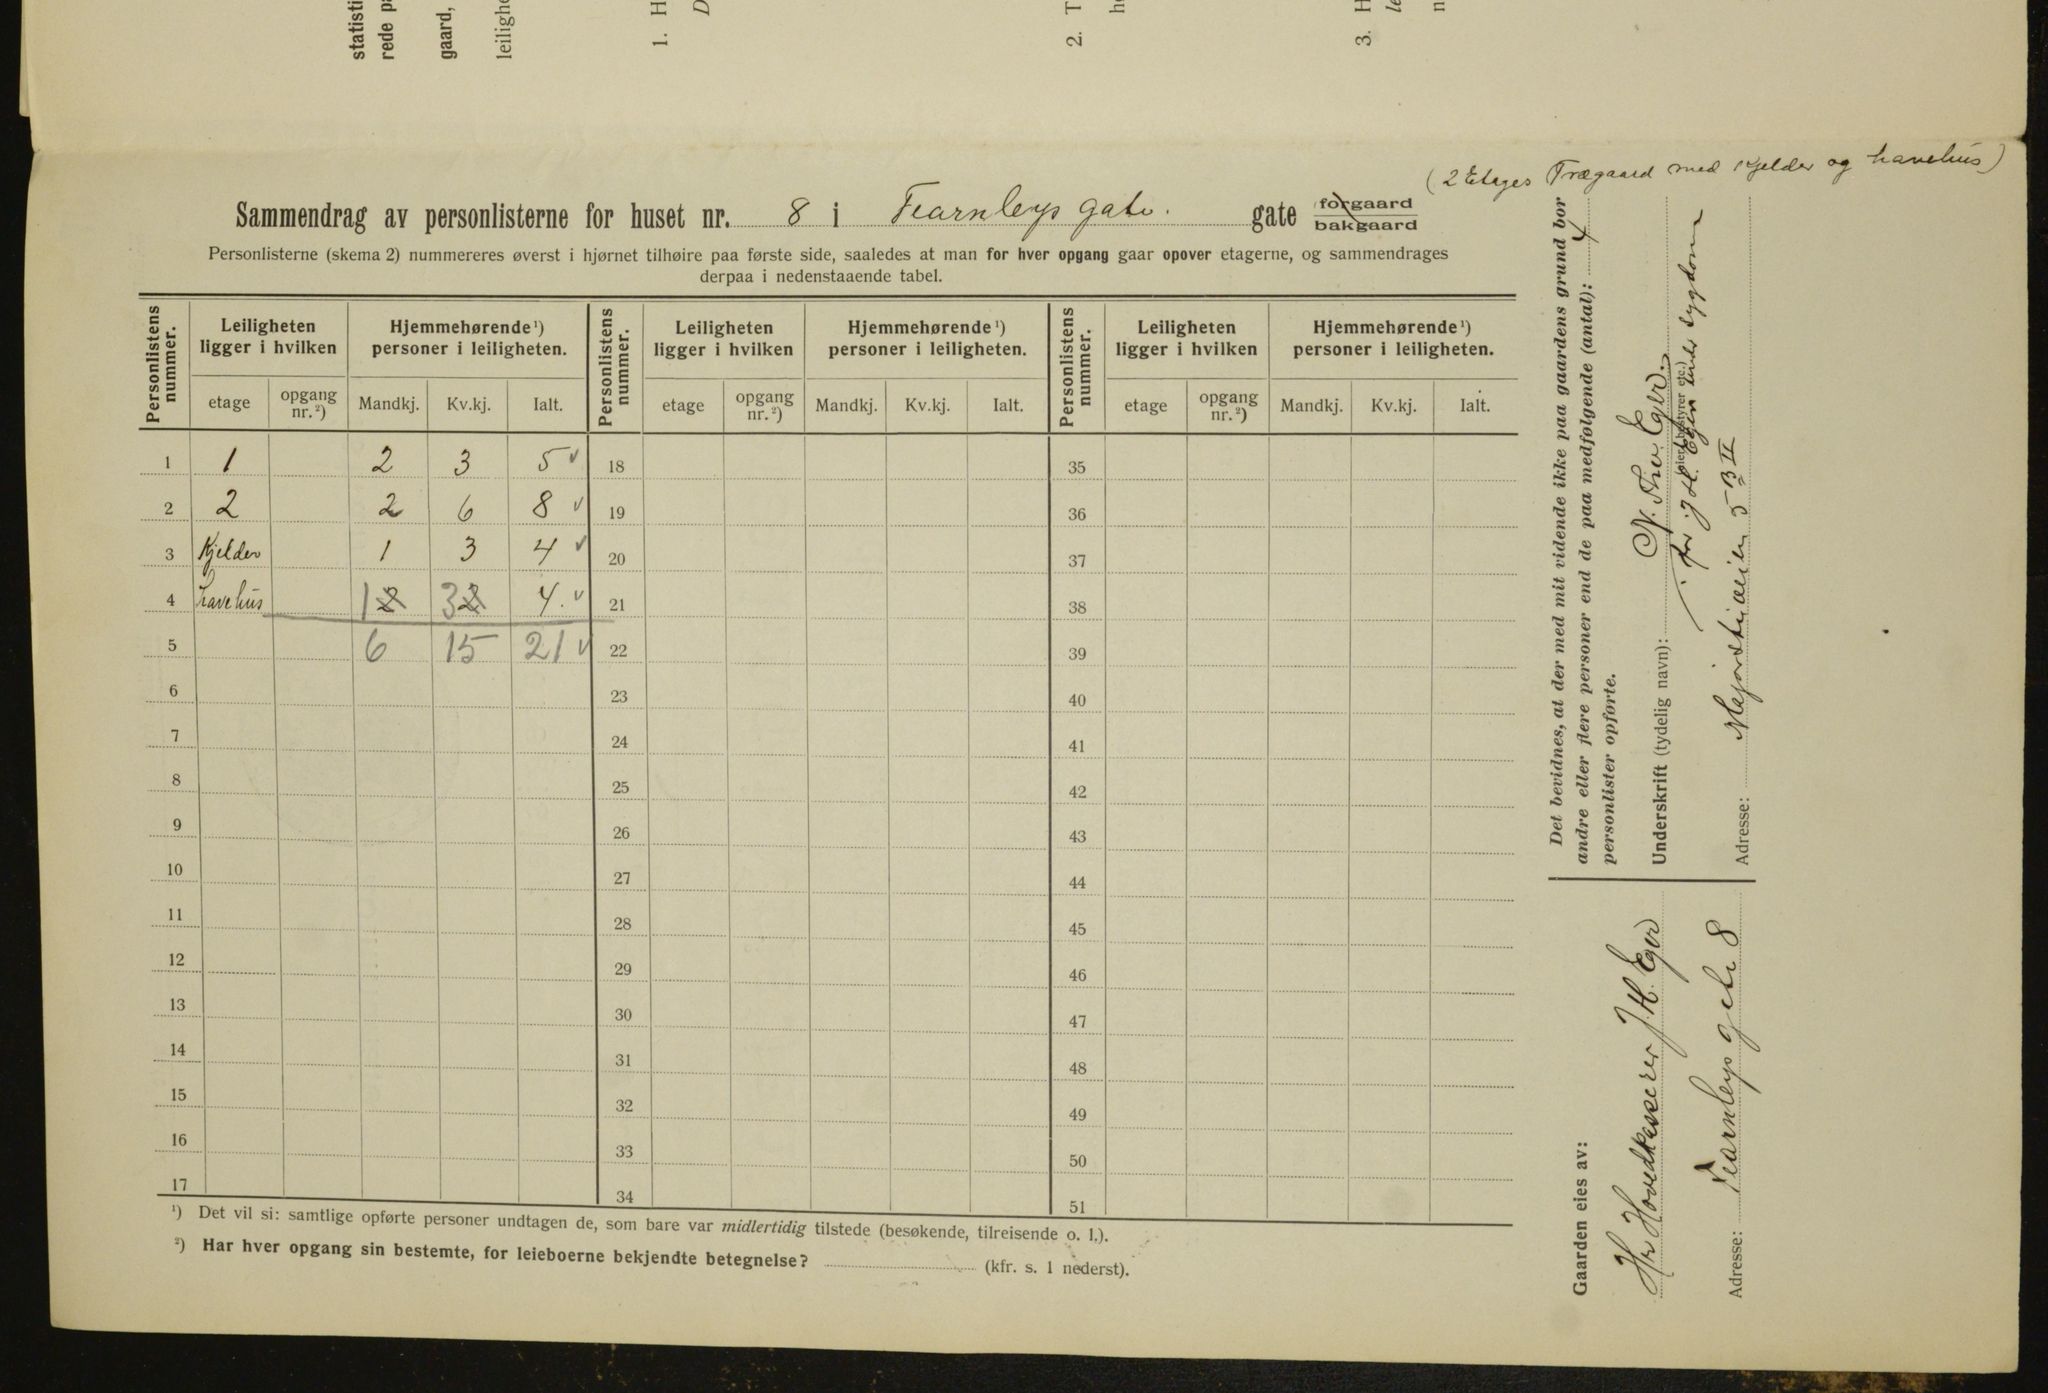 statisti
rede pa
gaard,
leilighe
1. H
D
2. T
h
3. H
le
n
(2 Etages Trægaard med Kjelder og havehus)
Sammendrag av personlisterne for huset nr. 8 i Fearnleys gate. gate forgaard
bakgaard
Personlisterne (skema 2) nummereres øverst i hjørnet tilhøire paa første side, saaledes at man for hver opgang gaar opover etagerne, og sammendrages
derpaa i nedenstaaende tabel.
Personlistens nummer. Leiligheten ligger i hvilken Hjemmehørende ¹) personer i leiligheten. Personlistens nummer. Leiligheten ligger i hvilken Hjemmehørende ¹) personer i leiligheten. Personlistens nummer. Leiligheten ligger i hvilken Hjemmehørende ¹) personer i leiligheten.
etage opgang nr. ²) Mandkj. Kv.kj. Ialt. etage opgang nr. ²) Mandkj. Kv.kj. Ialt. etage opgang nr. ²) Mandkj. Kv.kj. Ialt.
1 1 2 3 5 ✓ 18 35
2 2 2 6 8 ✓ 19 36
3 Kjelder 1 3 4 ✓ 20 37
4 havehus 1 2 3 2 4. ✓ 21 38
5 6 15 21 ✓ 22 39
6 23 40
7 24 41
8 25 42
9 26 43
10 27 44
11 28 45
12 29 46
13 30 47
14 31 48
15 32 49
16 33 50
17 34 51
¹) Det vil si: samtlige opførte personer undtagen de, som bare var midlertidig tilstede (besøkende, tilreisende o. l.).
²) Har hver opgang sin bestemte, for leieboerne bekjendte betegnelse? (kfr. s. 1 nederst).
Det bevidnes, at der med mit vidende ikke paa gaardens grund bor
andre eller flere personer end de paa medfølgende (antal): 4
personlister opførte.
Underskrift (tydelig navn): N. Thv. Eger.
(eier, bestyrer etc.)
for J. H. Eger under sygdom
Adresse: Majorstuveien 5 B II
Gaarden eies av:
Hr Hovedkasserer J. H. Eger
Adresse: Fearnleys gate 8